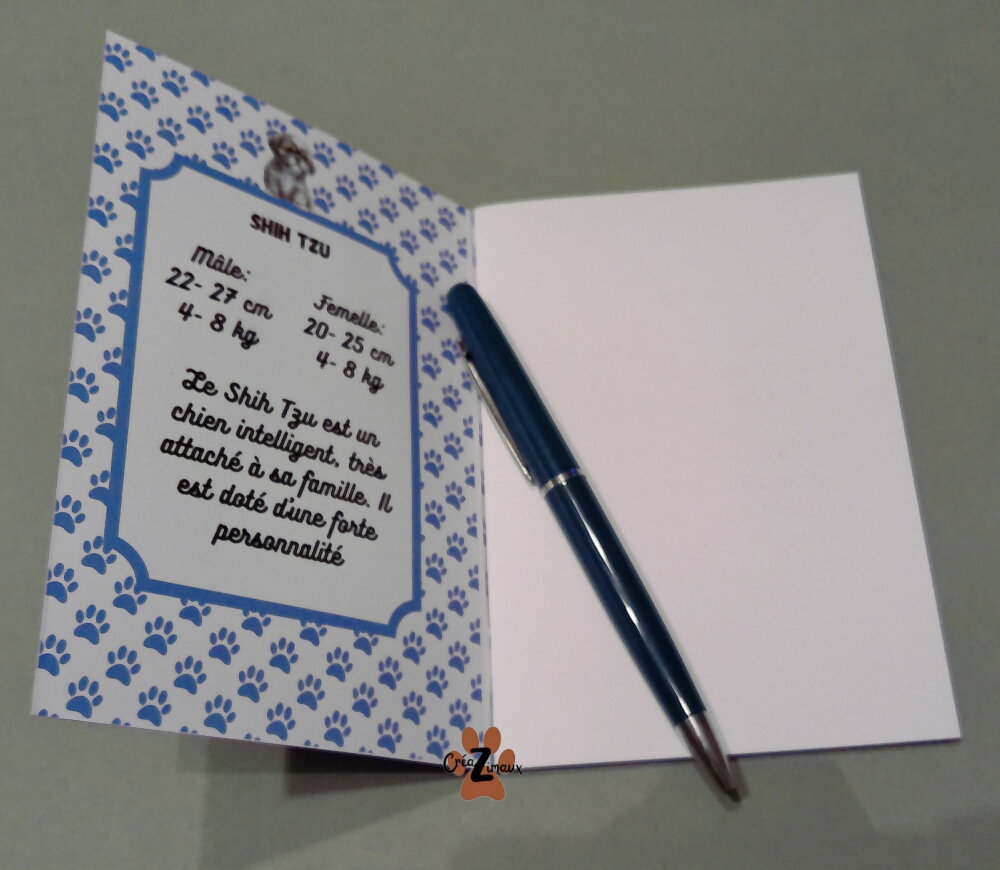 SHIH TZU
Mâle:
22- 27 cm
4- 8 kg
Femelle:
20- 25 cm
4- 8 kg
Le Shih Tzu est un
chien intelligent, très
attaché à sa famille. Il
est doté d'une forte
personnalité
CréaZimaux